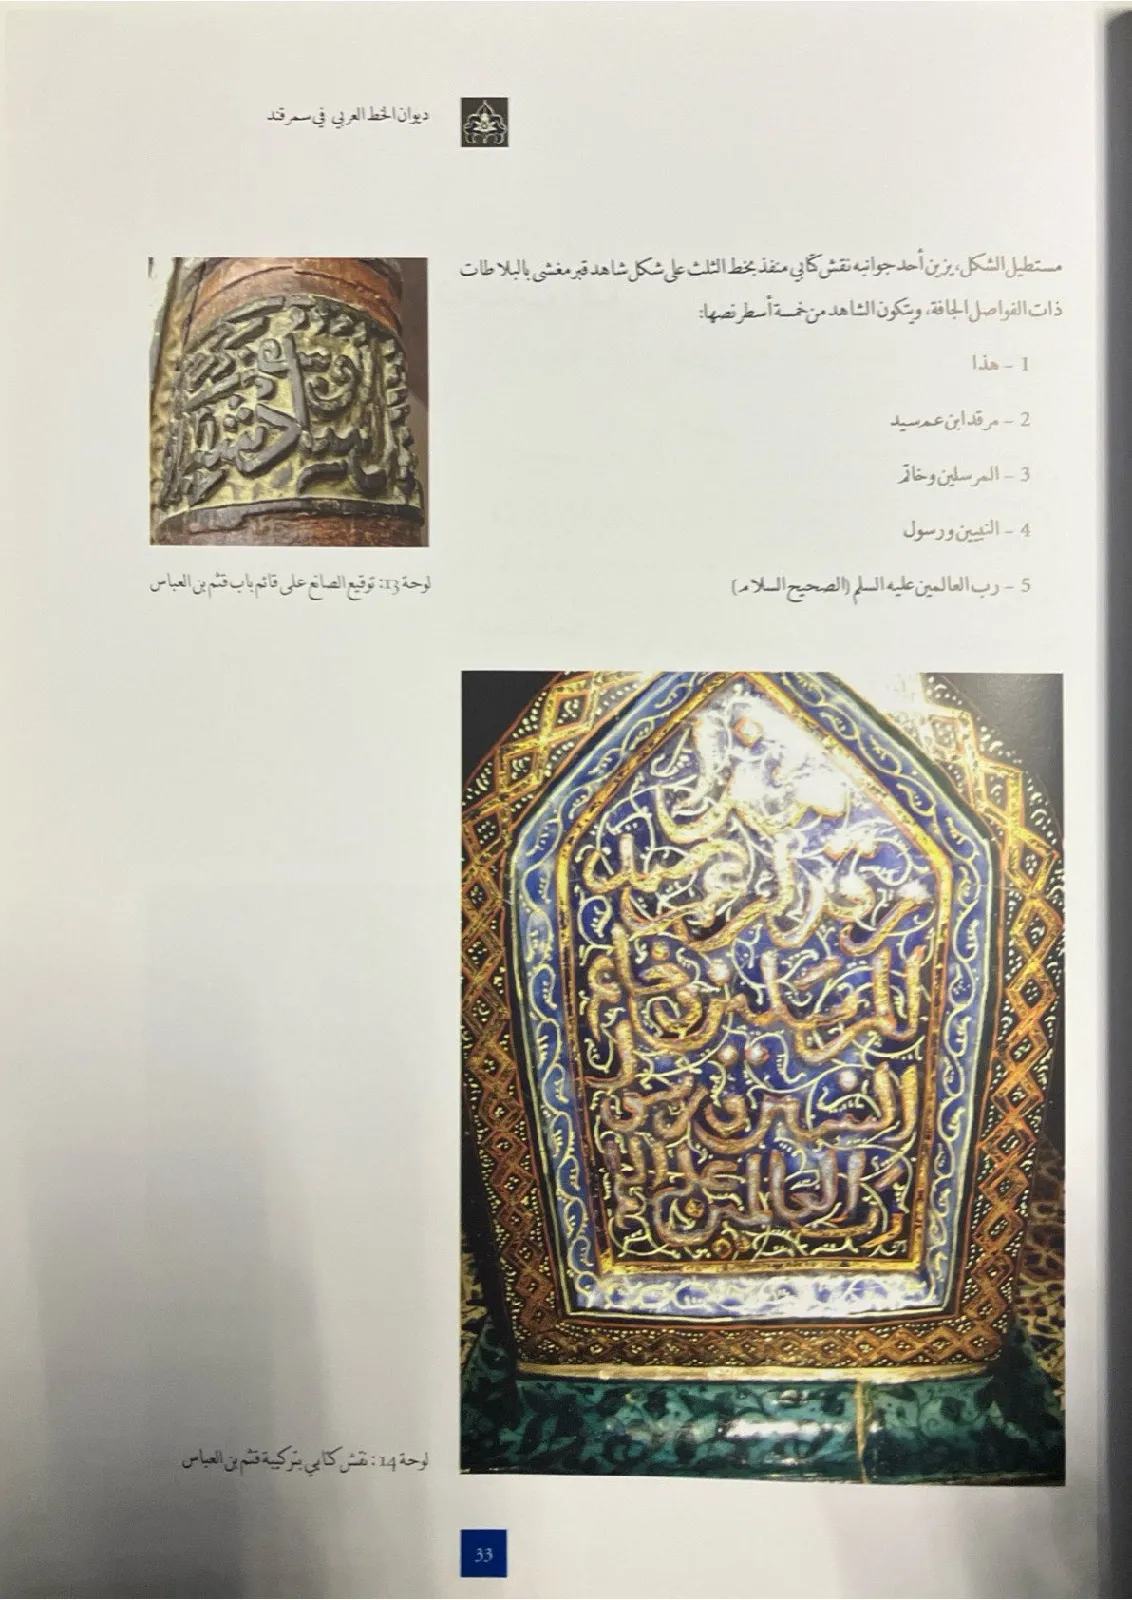 ديوان الخط العربي في سمرقند
مستطيل الشكل، يزين أحد جوانبه نقش كتابي منفذ بخط الثلث على شكل شاهد قبر مغشى بالبلاطات
ذات الفواصل الجافة، ويتكون الشاهد من خمسة أسطر نصها:
1 - هذا
2 - مرقد ابن عم سيد
3 - المرسلين وخاتم
4 - النبيين ورسول
5 - رب العالمين عليه السلم (الصحيح السلام)
لوحة 13: توقيع الصانع على قائم باب قثم بن العباس
هذا
مرقد ابن عم سيد
المرسلين وخاتم
النبيين ورسول
رب العالمين عليه السلم
لوحة 14: نقش كتابي بتركيبة قثم بن العباس
33